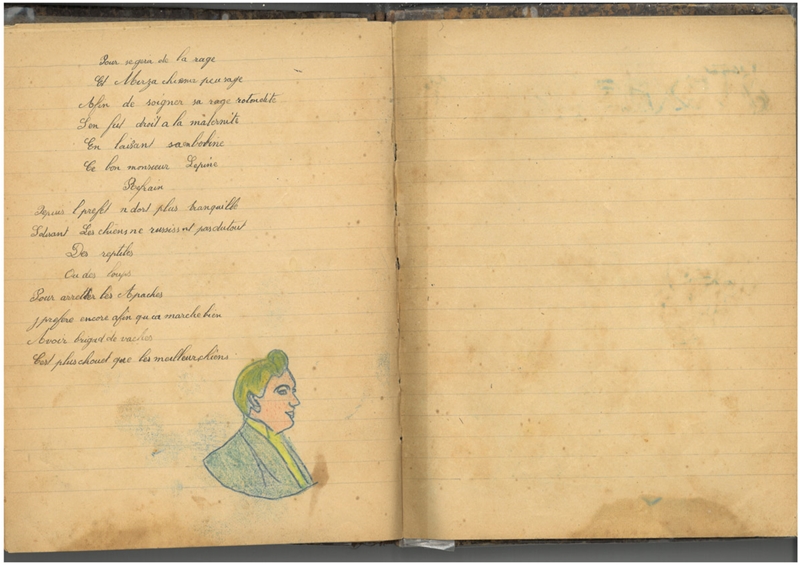 Pour segura de la rage
Et Mirza chienne peu sage
Afin de soigner sa rage rotondité
S'en fut droit a la maternité
En faisant sa bobine
Ce bon monsieur Lepine
Refrain
Depuis l prefet n dort plus tranquille
S disant Les chiens ne russissent pas du tout
Des reptiles
Ou des loups
Pour arreter les Apaches
j prefere encore afin qu ca marche bien
Avoir brigad de vaches
C'est plus chouet que les meilleur chiens